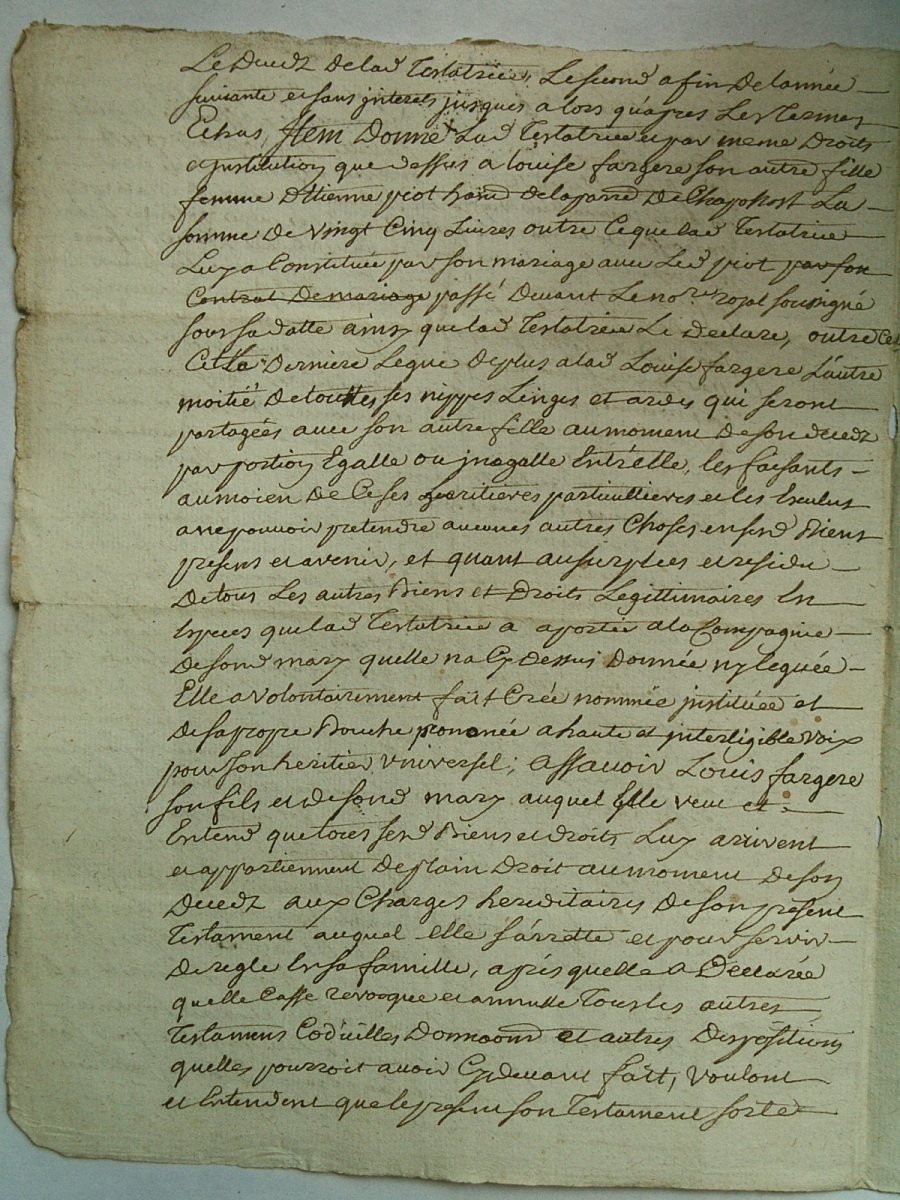 Le Decedz de lad Testatrice, Le second a fin de lannée
suivante et sans interets jusques alors qu'apres Les termes
Echus, Item Donne Lad Testatrice et par meme Droits
d'institution que dessus a louise fargere son autre fille
femme d'Etienne piot de la parre De Chaponost La
somme de vingt Cinq Livres outre Ce que lad Testatrice
Luy a Constituée par son mariage avec Led piot par son
Contrat De mariage passé Devant Le no.re royal soussigné
sous sa datte ainsy que lad Testatrice Le Declare, outre Ce
Cette Derniere Legue De plus a lad Louise fargere L'autre
moitié De touttes ses nippes Linges et ardes qui seront
partagées avec son autre fille au moment De son decedz
par portion Egalle ou inegalle Entr'elle, les faisants
au moien De Ce ses heritieres particullieres et les Exclut
a ne pouvoir pretendre aucunes autres Choses en sesd Biens
presens et avenir, et quant au surplus et residu
De tous Les autres Biens et Droits Legittimaires En
Especes que lad Testatrice a aportée a la Compagnie
De sond mary quelle na Cy Dessus Donnée ny leguée
Elle a volontairement fait Créé nommée instituée et
De sa propre Bouche prononcée a haute et inteligible voix
pour son heritier universel; assavoir Louis fargere
son fils et de sond mary auquel Elle veut et
Entend que tous sesd Biens et droits Luy arrivent
et appartiennent De plain Droit au moment De son
Decedz aux Charges hereditaires De son present
Testament auquel elle s'arrette et pour servir
De regle En sa famille, après quelle a Declarée
quelle Casse revocque et annulle Tous les autres
Testamens Codicilles Donnaons et autres Dispositions
quelles pourroit avoir Cy devant fait, voulant
et Entendent que le present son Testament sorte